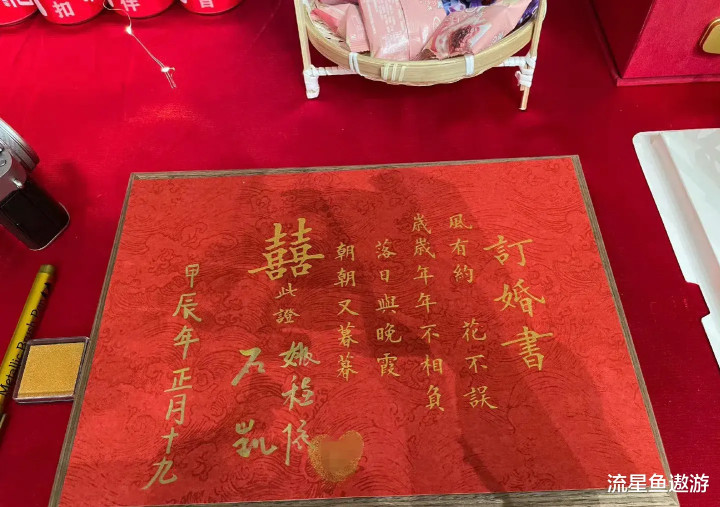 訂婚書
風有約 花不誤
歲歲年年不相負
落日與晚霞
朝朝又暮暮
囍
此證
石凱
甲辰年正月十九
扣
祥
Metallic Brush
流星鱼遨游